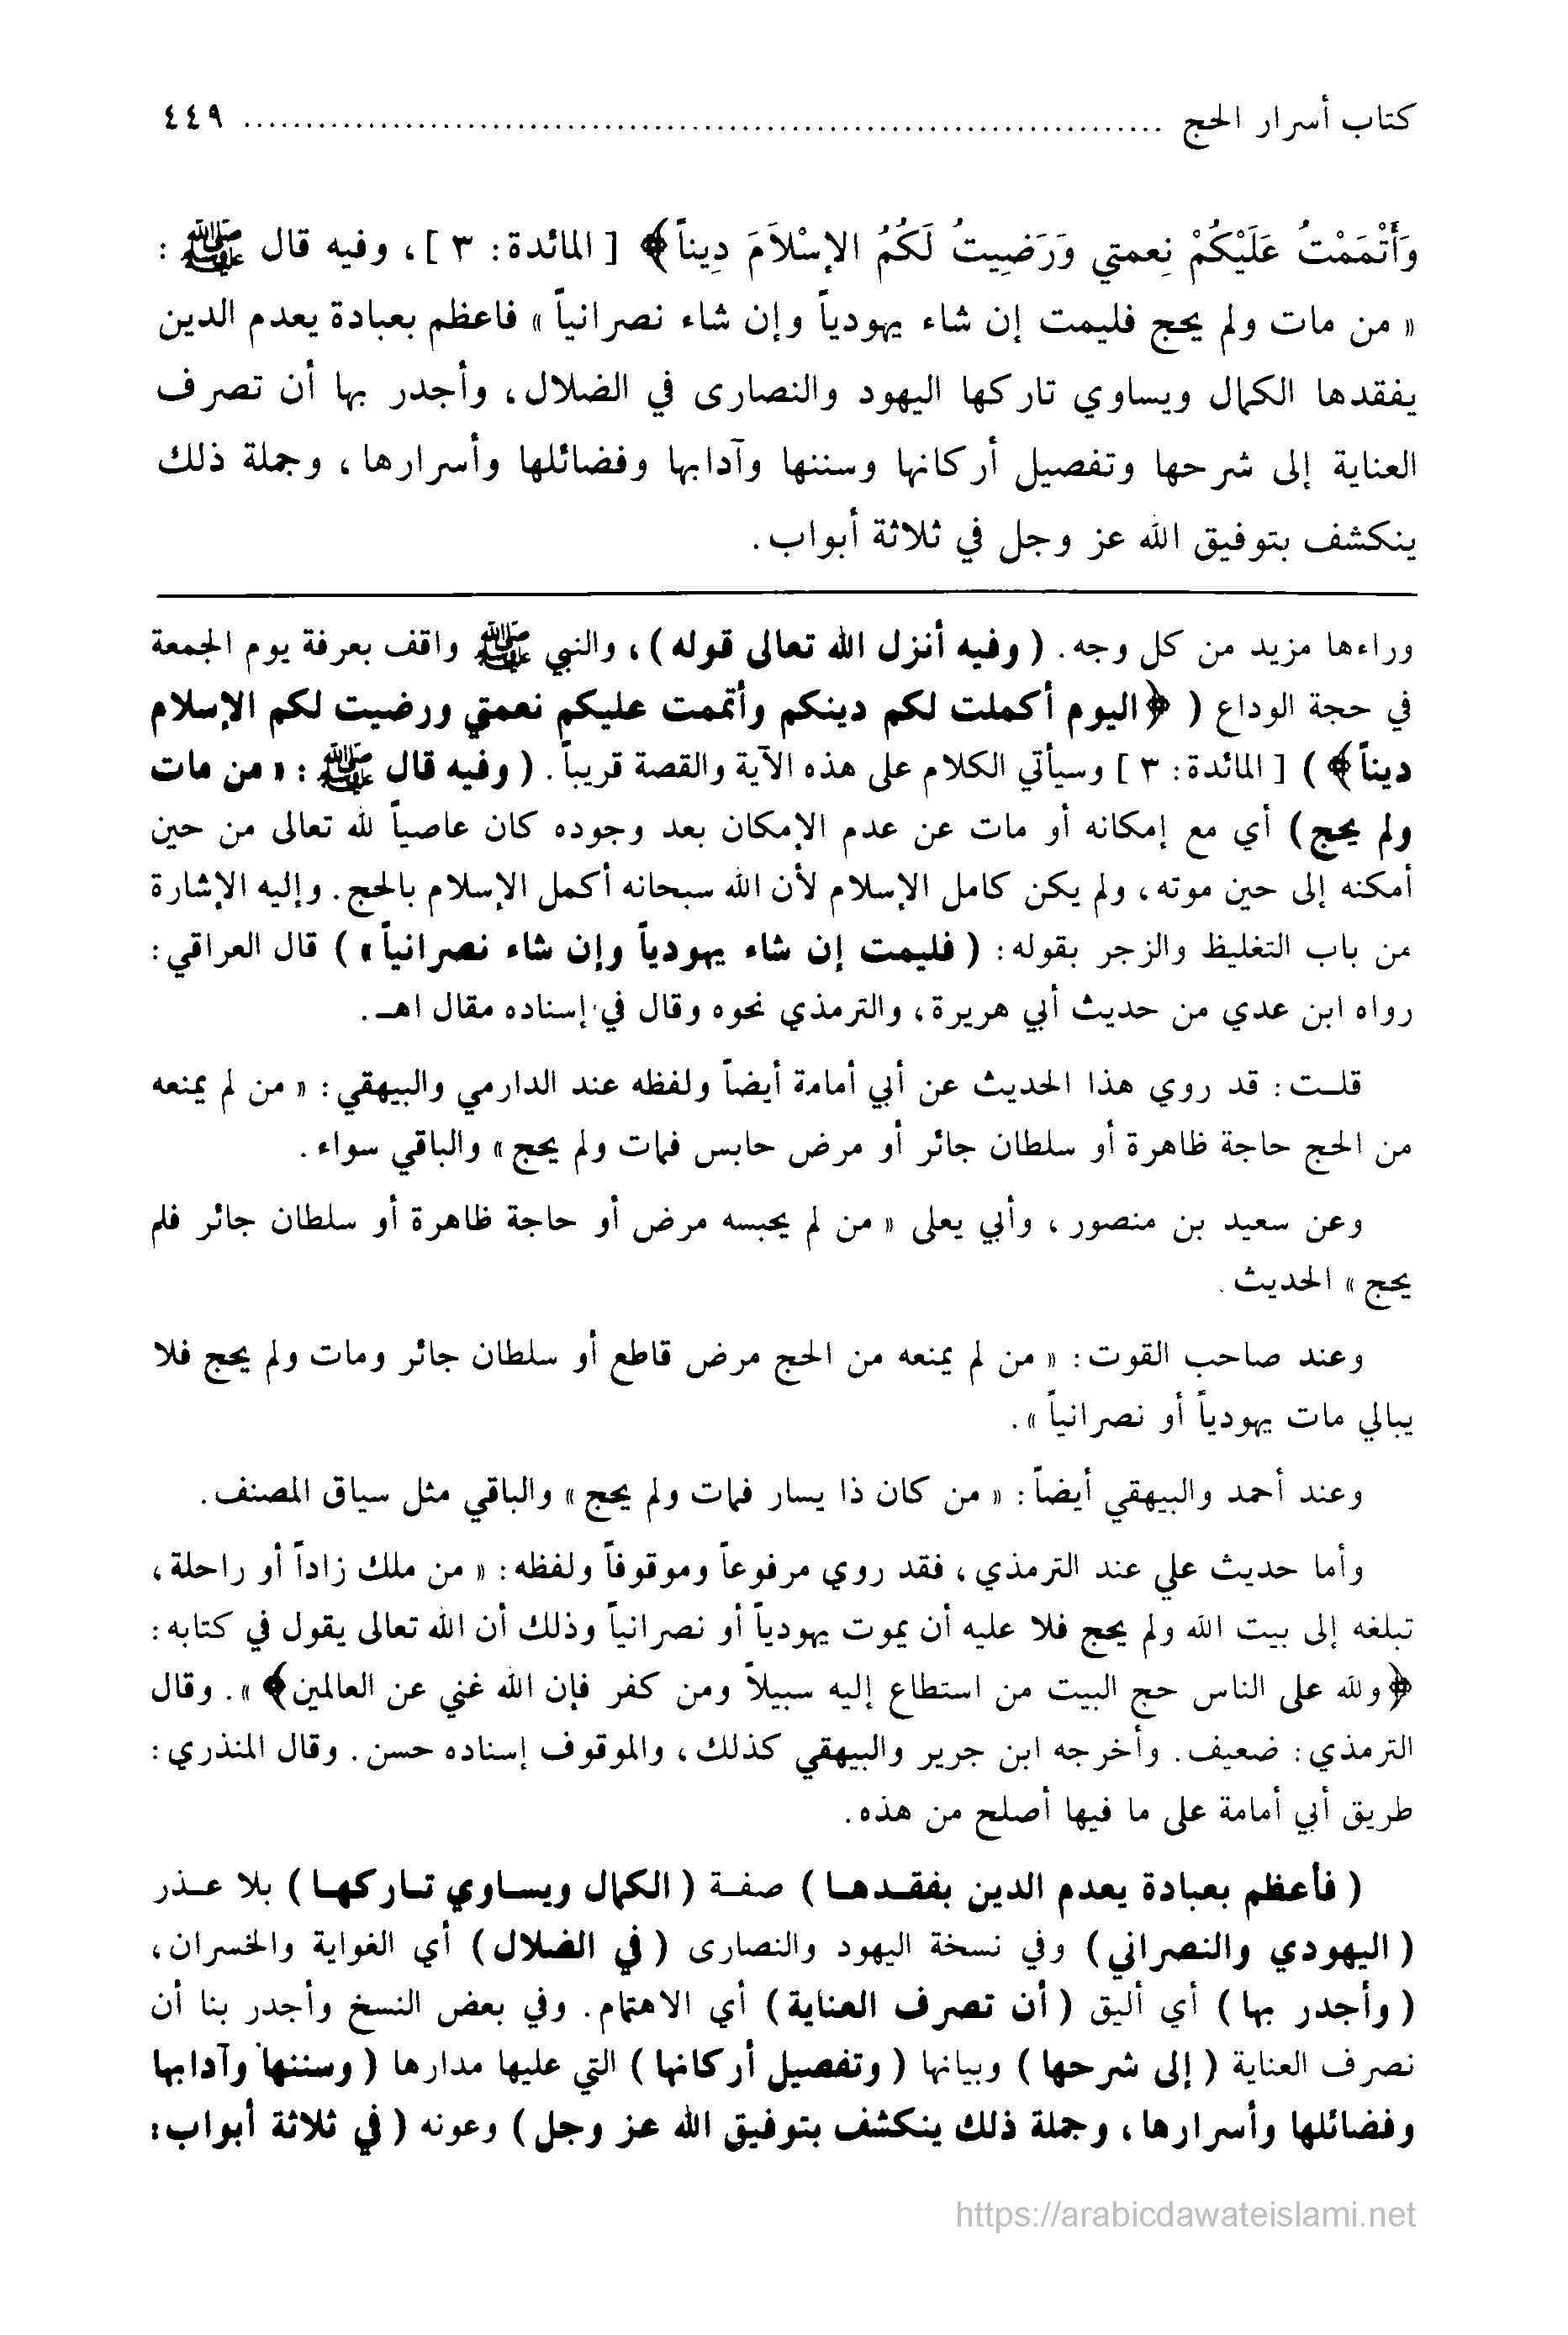 كتاب أسرار الحج ........................................................................ ٤٤٩
وَأَتْمَمْتُ عَلَيْكُمْ نِعمتي وَرَضِيتُ لَكُمُ الإِسْلاَمَ دِيناً﴾ [ المائدة: ٣ ]، وفيه قال ﷺ :
« من مات ولم يحج فليمت إن شاء يهودياً وإن شاء نصرانياً » فاعظم بعبادة يعدم الدين
يفقدها الكمال ويساوي تاركها اليهود والنصارى في الضلال، وأجدر بها أن تصرف
العناية إلى شرحها وتفصيل أركانها وسننها وآدابها وفضائلها وأسرارها، وجملة ذلك
ينكشف بتوفيق الله عز وجل في ثلاثة أبواب.
وراءها مزيد من كل وجه. ( وفيه أنزل الله تعالى قوله )، والنبي ﷺ واقف بعرفة يوم الجمعة
في حجة الوداع ( ﴿اليوم أكملت لكم دينكم وأتممت عليكم نعمتي ورضيت لكم الإسلام
ديناً﴾ ) [ المائدة: ٣ ] وسيأتي الكلام على هذه الآية والقصة قريباً. ( وفيه قال ﷺ : « من مات
ولم يحج ) أي مع إمكانه أو مات عن عدم الإمكان بعد وجوده كان عاصياً لله تعالى من حين
أمكنه إلى حين موته، ولم يكن كامل الإسلام لأن الله سبحانه أكمل الإسلام بالحج. وإليه الإشارة
من باب التغليظ والزجر بقوله: ( فليمت إن شاء يهودياً وإن شاء نصرانياً » ) قال العراقي:
رواه ابن عدي من حديث أبي هريرة، والترمذي نحوه وقال في إسناده مقال اهـ.
قلـت: قد روي هذا الحديث عن أبي أمامة أيضاً ولفظه عند الدارمي والبيهقي: « من لم يمنعه
من الحج حاجة ظاهرة أو سلطان جائر أو مرض حابس فمات ولم يحج » والباقي سواء.
وعن سعيد بن منصور، وأبي يعلى « من لم يحبسه مرض أو حاجة ظاهرة أو سلطان جائر فلم
يحج » الحديث.
وعند صاحب القوت: « من لم يمنعه من الحج مرض قاطع أو سلطان جائر ومات ولم يحج فلا
يبالي مات يهودياً أو نصرانياً ».
وعند أحمد والبيهقي أيضاً: « من كان ذا يسار فمات ولم يحج » والباقي مثل سياق المصنف.
وأما حديث علي عند الترمذي، فقد روي مرفوعاً وموقوفاً ولفظه: « من ملك زاداً أو راحلة،
تبلغه إلى بيت الله ولم يحج فلا عليه أن يموت يهودياً أو نصرانياً وذلك أن الله تعالى يقول في كتابه:
﴿ولله على الناس حج البيت من استطاع إليه سبيلاً ومن كفر فإن الله غني عن العالمين﴾ ». وقال
الترمذي: ضعيف. وأخرجه ابن جرير والبيهقي كذلك، والموقوف إسناده حسن. وقال المنذري:
طريق أبي أمامة على ما فيها أصلح من هذه.
( فأعظم بعبادة يعدم الدين بفقـدهـا ) صفـة ( الكمال ويسـاوي تـاركهـا ) بلا عـذر
( اليهودي والنصراني ) وفي نسخة اليهود والنصارى ( في الضلال ) أي الغواية والخسران،
( وأجدر بها ) أي أليق ( أن تصرف العناية ) أي الاهتمام. وفي بعض النسخ وأجدر بنا أن
نصرف العناية ( إلى شرحها ) وبيانها ( وتفصيل أركانها ) التي عليها مدارها ( وسننها وآدابها
وفضائلها وأسرارها، وجملة ذلك ينكشف بتوفيق الله عز وجل ) وعونه ( في ثلاثة أبواب:
https://arabicdawateislami.net